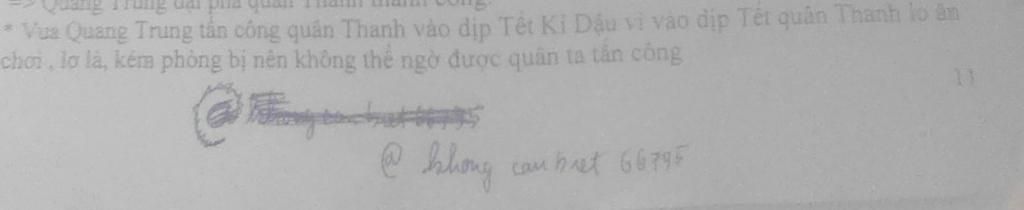 => Quang Trung đại phá quân Thanh thành công.
* Vua Quang Trung tấn công quân Thanh vào dịp Tết Kỉ Dậu vì vào dịp Tết quân Thanh lo ăn
chơi , lơ là, kém phòng bị nên không thể ngờ được quân ta tấn công
11
@ khong can biet 66795